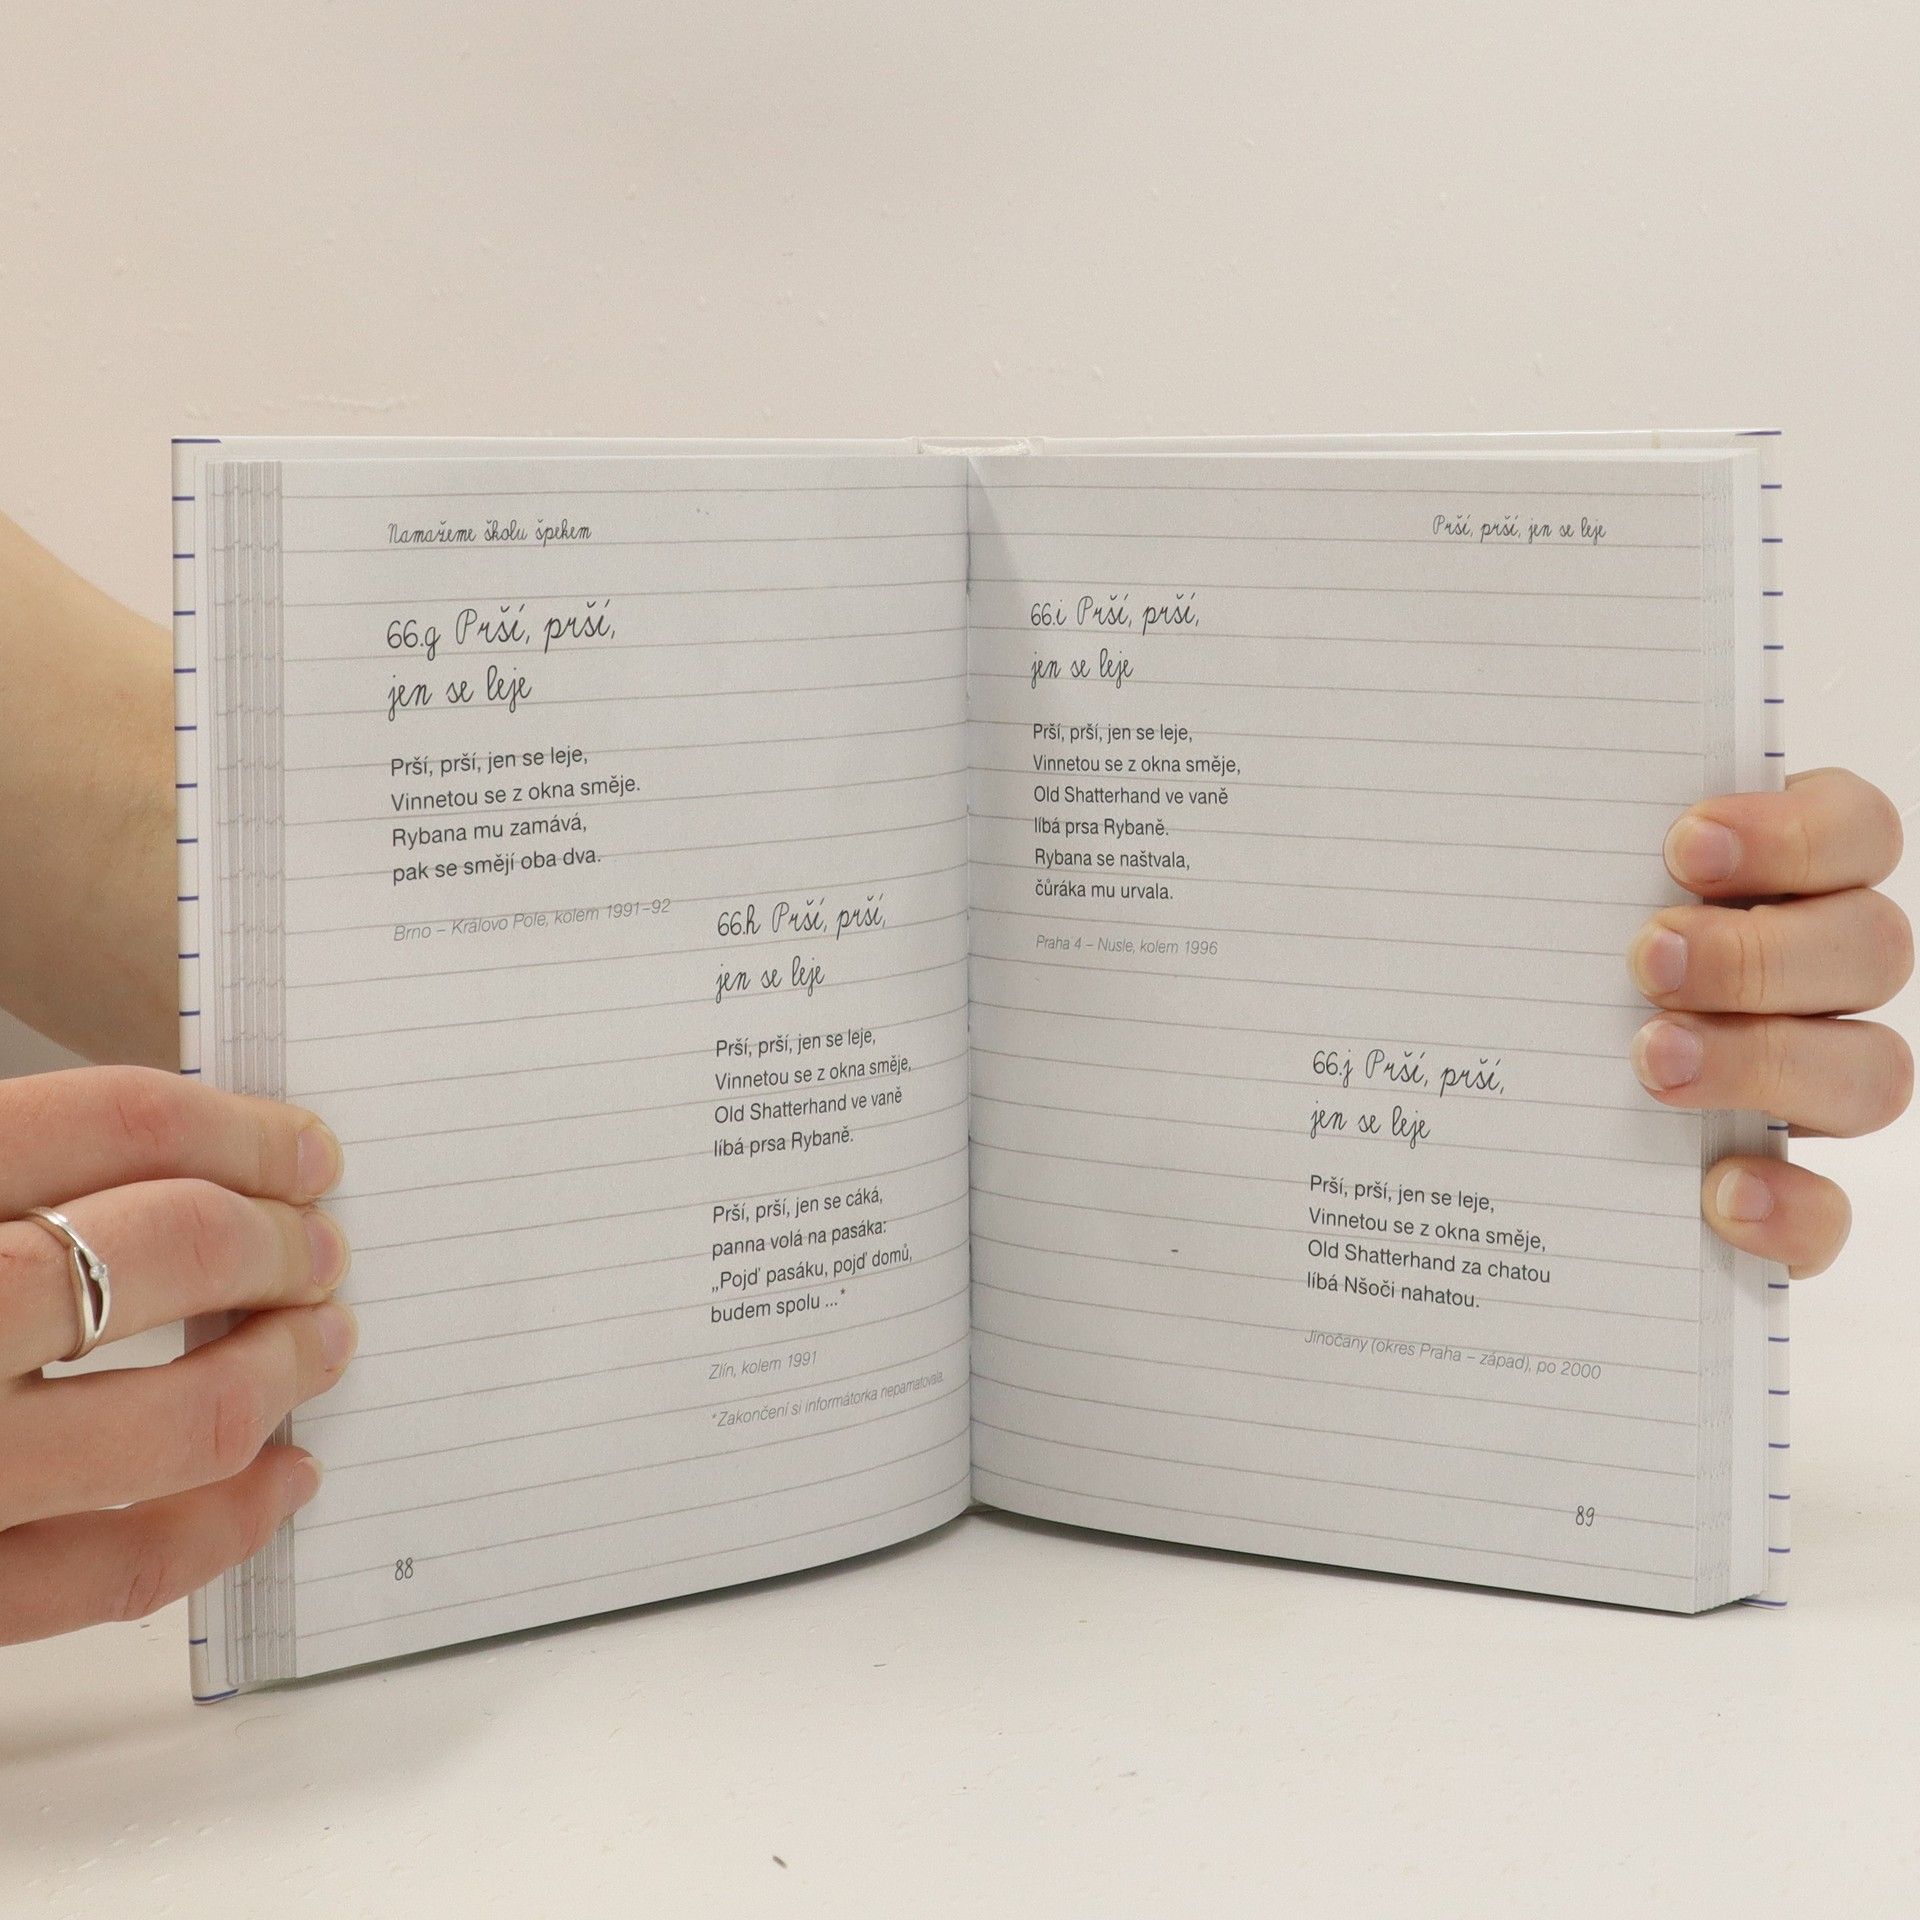 Namažeme školu špekem
66.g Prší, prší,
jen se leje
Prší, prší, jen se leje,
Vinnetou se z okna směje.
Rybana mu zamává,
pak se smějí oba dva.
Brno – Královo Pole, kolem 1991–92
66.h Prší, prší,
jen se leje
Prší, prší, jen se leje,
Vinnetou se z okna směje,
Old Shatterhand ve vaně
líbá prsa Rybaně.
Prší, prší, jen se cáká,
panna volá na pasáka:
„Pojď pasáku, pojď domů,
budem spolu ...*
Zlín, kolem 1991
*Zakončení si informátorka nepamatovala.
88
Prší, prší, jen se leje
66.i Prší, prší,
jen se leje
Prší, prší, jen se leje,
Vinnetou se z okna směje,
Old Shatterhand ve vaně
líbá prsa Rybaně.
Rybana se naštvala,
čůráka mu urvala.
Praha 4 – Nusle, kolem 1996
66.j Prší, prší,
jen se leje
Prší, prší, jen se leje,
Vinnetou se z okna směje,
Old Shatterhand za chatou
líbá Nšoči nahatou.
Jinočany (okres Praha – západ), po 2000
89